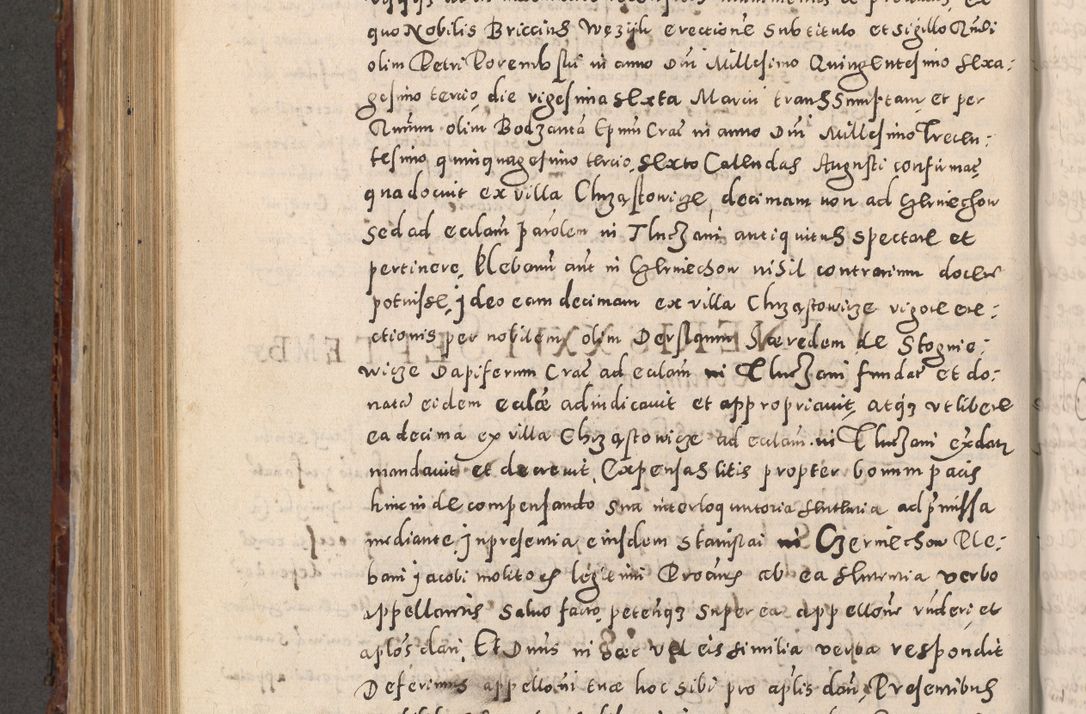 quo Nobilis Briccius Wężyk erectione sub titulo et sigillo Rndi
olim Petri Porembski in anno Dni Millesimo Quingentesimo sexa-
gesimo tercio die vigesima sexta Marcii transsumptam et per
Rmum olim Bodzanta Epum Crac in anno Dni Millesimo Trecen-
tesimo quinquagesimo tercio, sexto Calendas Augusti confirmat
qua docuit ex villa Chrząstowice, decimam non ad Czerniechow
sed ad ecclam parolem in Tluczani antiquitus spectare et
pertinere, Plebanum aut in Czerniechow nihil contrarium docere
potuisse, Ideo eam decimam ex villa Chrząstowicze vigore ere-
ctionis per nobilem olim Derslaum Haeredem de Stognie-
wicze Dapiferum Crac ad ecclam in Tluczani fundat et do-
nata eidem eccle adiudicavit et appropriavit, atq3 ut libere
ea decima ex villa Chrząstowicze ad ecclam in Tluczani exdatur
mandavit et decrevit, Expensas litis propter bonum pacis
hinc inde compensando sua interloquutoria sententia ad pmissa
mediante. In presentia eiusdem Stanislai in Czerniechow Ple-
bani Jacobi molitoris legitimi Procuris ab ea sententia verbo
appellantis salvo facto, petenq3 super ea appellone rnderi et
aplos dari, Et Dnus in haec vel eis similia verba respondit
Deferimus appelloni tuae hoc sibi pro aplis dan, Presentibus